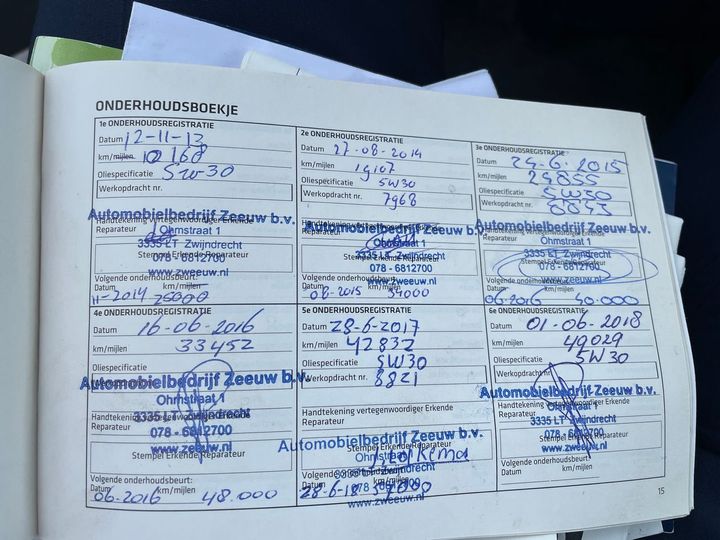 ONDERHOUDSBOEKJE
1e ONDERHOUDSREGISTRATIE
Datum 12-11-13
km/mijlen 10160
Oliespecificatie 5W30
Werkopdracht nr.
Automobielbedrijf Zeeuw b.v.
Handtekening vertegenwoordiger Erkende
Reparateur
Ohmstraat 1
3335 LT Zwijndrecht
078 - 6812700
www.zweeuw.nl
Volgende onderhoudsbeurt:
Datum km/mijlen
11-2014 25000
2e ONDERHOUDSREGISTRATIE
Datum 27-08-2014
km/mijlen 19107
Oliespecificatie 5W30
Werkopdracht nr. 7968
Automobielbedrijf Zeeuw b.v.
Handtekening vertegenwoordiger Erkende
Reparateur
Ohmstraat 1
3335 LT Zwijndrecht
Stempel Erkende Reparateur
078 - 6812700
Volgende onderhoudsbeurt:
www.zweeuw.nl
Datum km/mijlen
08-2015 34000
3e ONDERHOUDSREGISTRATIE
Datum 24-6-2015
km/mijlen 24855
Oliespecificatie 5W30
Werkopdracht nr. 8855
Automobielbedrijf Zeeuw b.v.
Handtekening vertegenwoordiger Erkende
Reparateur
Ohmstraat 1
3335 LT Zwijndrecht
Stempel Erkende Reparateur
078 - 6812700
Volgende onderhoudsbeurt:
www.zweeuw.nl
Datum km/mijlen
06-2016 40.000
4e ONDERHOUDSREGISTRATIE
Datum 16-06-2016
km/mijlen 33452
Oliespecificatie
Automobielbedrijf Zeeuw b.v.
Ohmstraat 1
Handtekening vertegenwoordiger Erkende
3335 LT Zwijndrecht
Reparateur
078 - 6812700
www.zweeuw.nl
Stempel Erkende Reparateur
Volgende onderhoudsbeurt:
Datum km/mijlen
06-2016 48.000
5e ONDERHOUDSREGISTRATIE
Datum 28-6-2017
km/mijlen 42832
Oliespecificatie 5W30
Werkopdracht nr. 8821
Handtekening vertegenwoordiger Erkende
Reparateur
Automobielbedrijf Zeeuw b.v.
Stempel Erkende Reparateur
Ohmstraat 1
3335 LT Zwijndrecht
Volgende onderhoudsbeurt:
078 - 6812700
Datum km/mijlen
28-6-18 57000
www.zweeuw.nl
6e ONDERHOUDSREGISTRATIE
Datum 01-06-2018
km/mijlen 49029
Oliespecificatie 5W30
Werkopdracht nr.
Automobielbedrijf Zeeuw b.v.
Handtekening vertegenwoordiger Erkende
Reparateur
Ohmstraat 1
3335 LT Zwijndrecht
078 - 6812700
Stempel Erkende Reparateur
www.zweeuw.nl
Volgende onderhoudsbeurt:
Datum km/mijlen
15